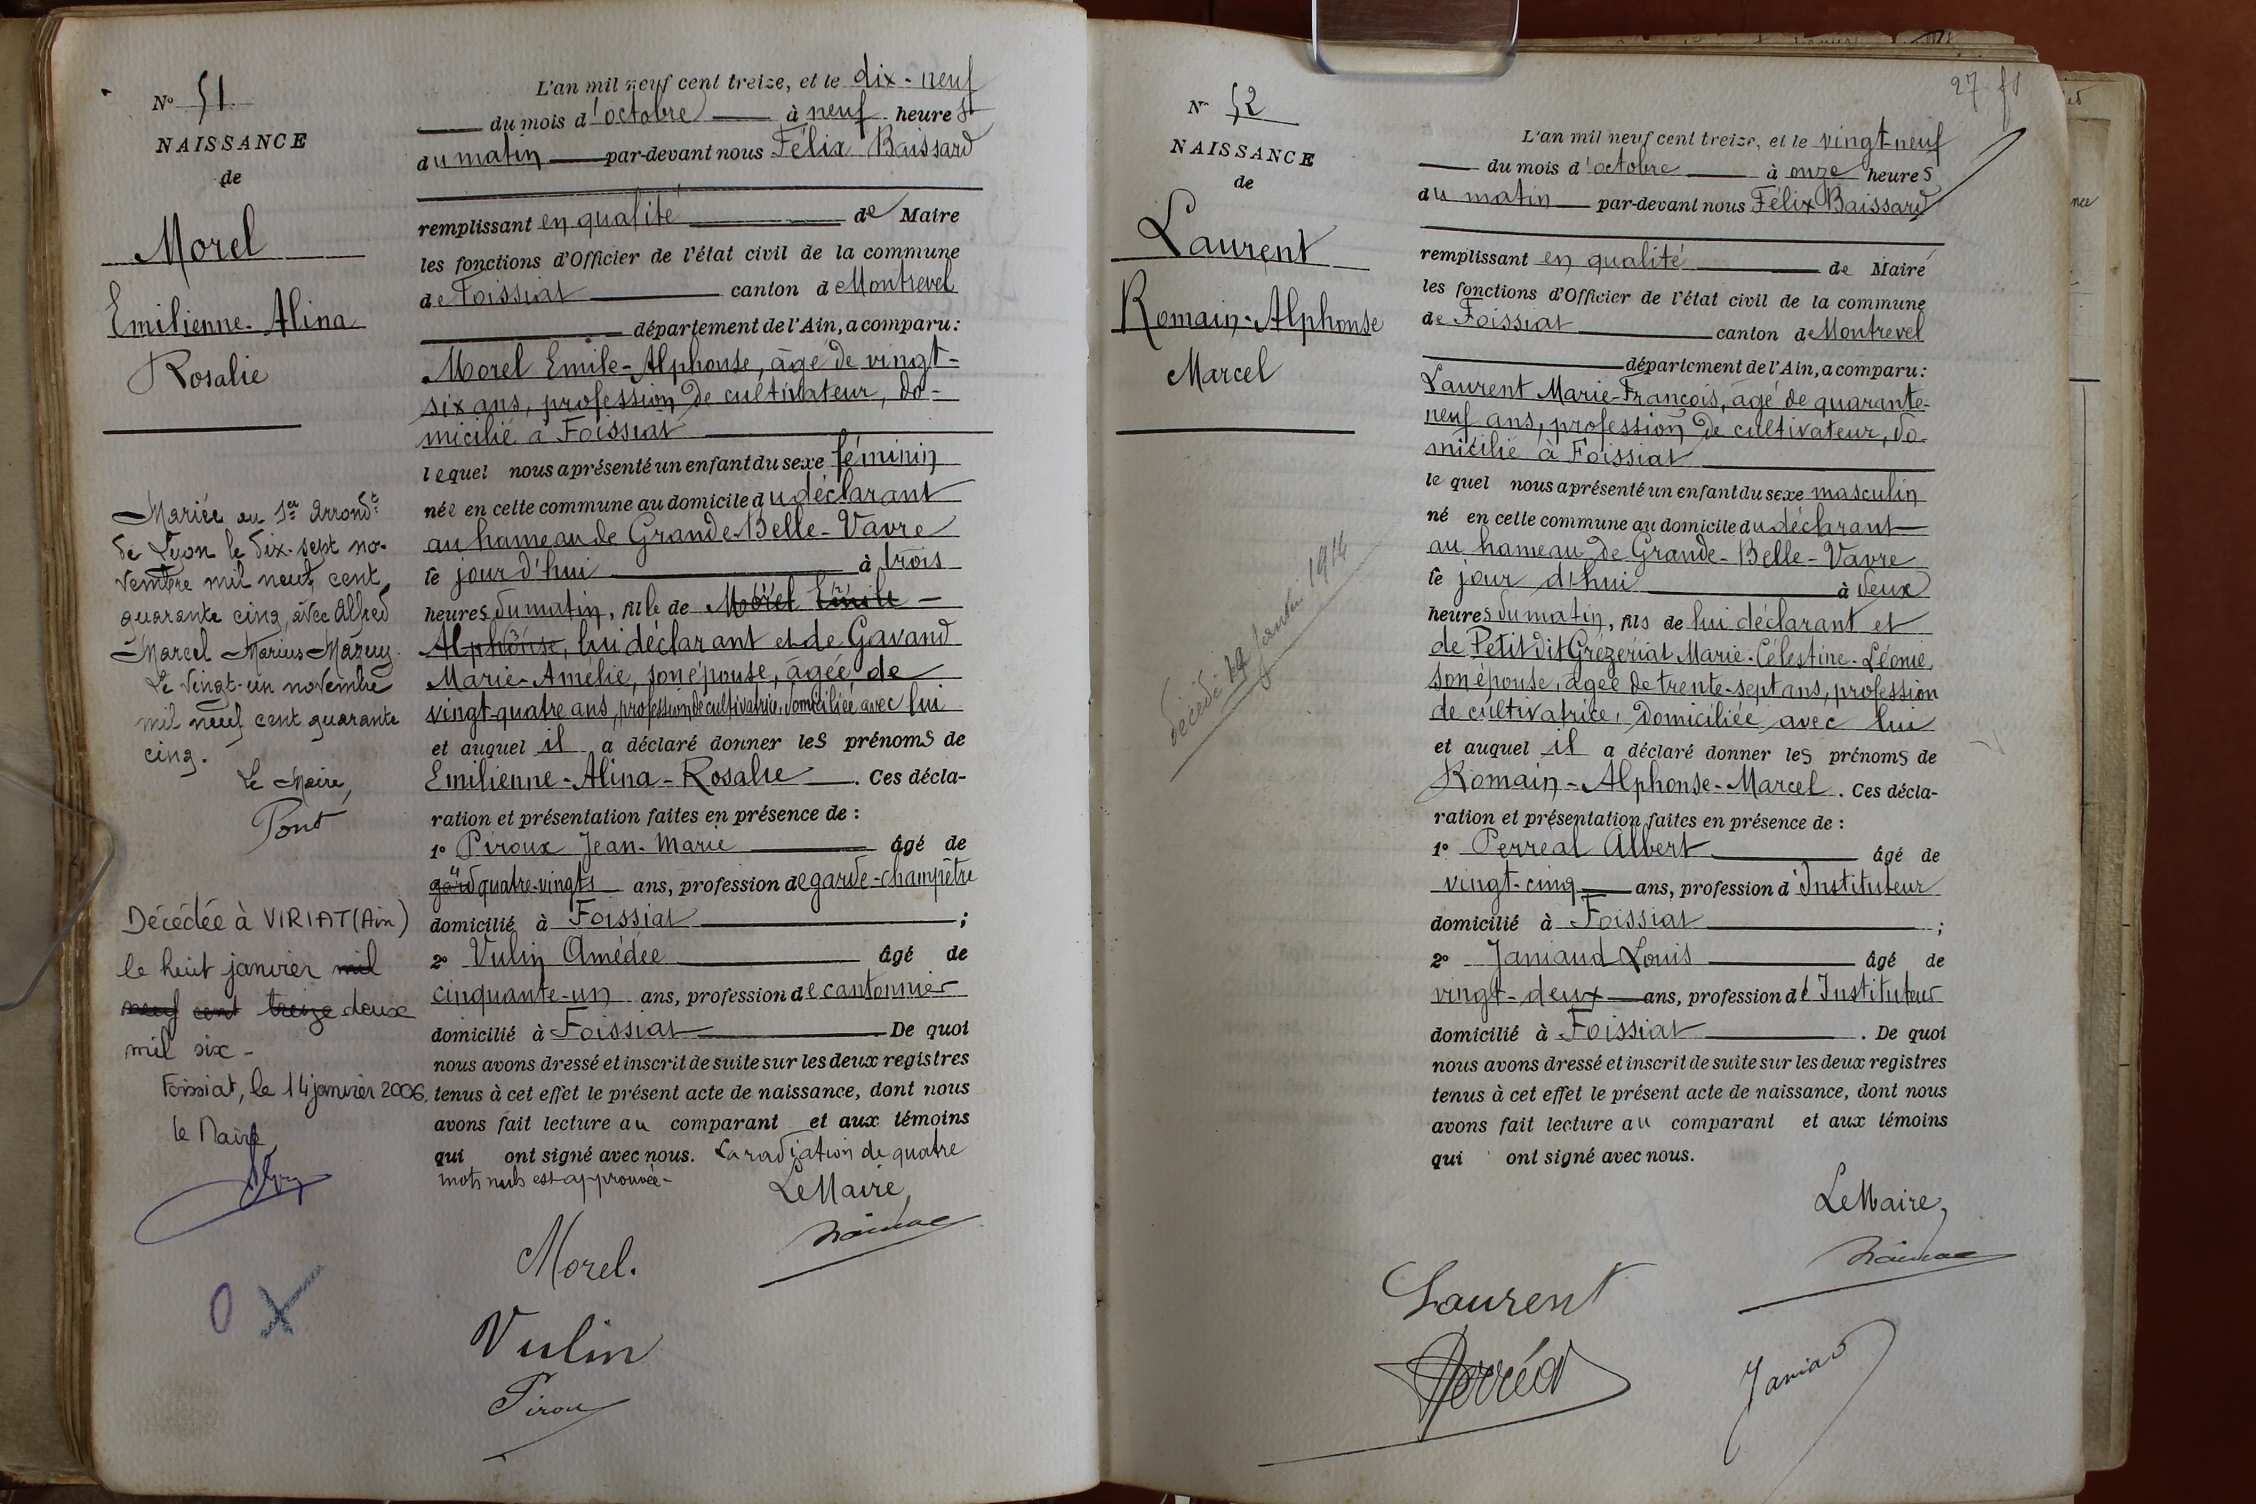 N° 51
NAISSANCE
de
Morel
Emilienne-Alina
Rosalie
Mariée au 1er Arrondt
de Lyon le dix-sept no-
vembre mil neuf cent
quarante cinq, avec Alfred
Marcel Marius Mazuy.
Le vingt-un novembre
mil neuf cent quarante
cinq.
Le Maire,
Pont
Décédée à VIRIAT (Ain)
le huit janvier mil
neuf cent treize deux
mil six -
Foissiat, le 14 janvier 2006.
le Maire
O X
L'an mil neuf cent treize, et le dix-neuf
du mois d'octobre à neuf heures
du matin par-devant nous Félix Baissard
remplissant en qualité de Maire
les fonctions d'Officier de l'état civil de la commune
de Foissiat canton de Montrevel
département de l'Ain, a comparu :
Morel Emile-Alphonse, âgé de vingt-
six ans, profession de cultivateur, do-
micilié à Foissiat
lequel nous a présenté un enfant du sexe féminin
née en cette commune au domicile du déclarant
au hameau de Grande-Belle-Vavre
le jour d'hui à trois
heures du matin, fille de Morel Emile -
Alphonse, lui déclarant et de Gavand
Marie-Amélie, son épouse, âgée de
vingt-quatre ans, profession de cultivatrice, domiciliée avec lui
et auquel il a déclaré donner les prénoms de
Emilienne-Alina-Rosalie. Ces décla-
ration et présentation faites en présence de :
1° Piroux Jean-Marie âgé de
gard quatre-vingts ans, profession de garde-champêtre
domicilié à Foissiat ;
2° Vulin Amédée âgé de
cinquante-un ans, profession de cantonnier
domicilié à Foissiat De quoi
nous avons dressé et inscrit de suite sur les deux registres
tenus à cet effet le présent acte de naissance, dont nous
avons fait lecture au comparant et aux témoins
qui ont signé avec nous. La radiation de quatre
mots nuls est approuvée -
Le Maire,
Morel.
Vulin
Pirou
27
N° 52
NAISSANCE
de
Laurent
Romain-Alphonse
Marcel
décédé 19 janvier 1914
L'an mil neuf cent treize, et le vingt-neuf
du mois d'octobre à onze heures
du matin par-devant nous Félix Baissard
remplissant en qualité de Maire
les fonctions d'Officier de l'état civil de la commune
de Foissiat canton de Montrevel
département de l'Ain, a comparu :
Laurent Marie-François, âgé de quarante-
neuf ans, profession de cultivateur, do-
micilié à Foissiat
lequel nous a présenté un enfant du sexe masculin
né en cette commune au domicile du déclarant
au hameau de Grande-Belle-Vavre
le jour d'hui à deux
heures du matin, fils de lui déclarant et
de Petit dit Grézériat Marie-Célestine-Léonie,
son épouse, âgée de trente-sept ans, profession
de cultivatrice, domiciliée avec lui
et auquel il a déclaré donner les prénoms de
Romain-Alphonse-Marcel. Ces décla-
ration et présentation faites en présence de :
1° Perréal Albert âgé de
vingt-cinq ans, profession d'Instituteur
domicilié à Foissiat ;
2° Janiaud Louis âgé de
vingt-deux ans, profession d'Instituteur
domicilié à Foissiat. De quoi
nous avons dressé et inscrit de suite sur les deux registres
tenus à cet effet le présent acte de naissance, dont nous
avons fait lecture au comparant et aux témoins
qui ont signé avec nous.
Le Maire,
Laurent
Perréal
Janiaud